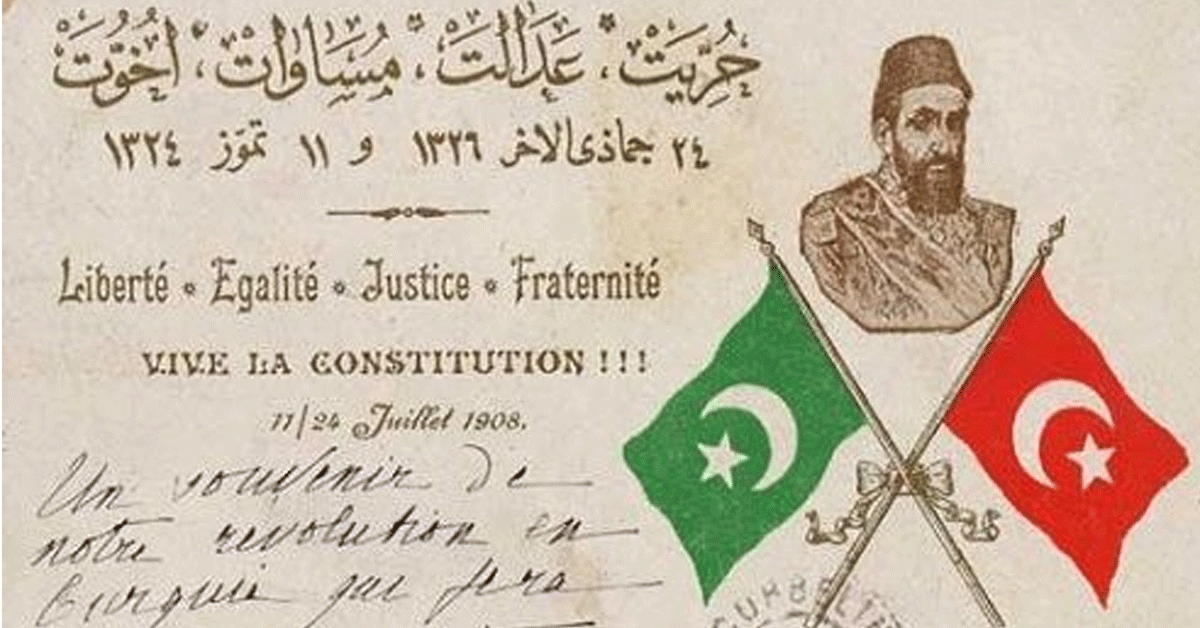 حُرِّيَتْ، عَدَالَتْ، مُسَاوَاتْ، اُخُوَّتْ
٢٤ جماذى الاخر ١٣٢٦ و ١١ تموّز ١٣٢٤
Liberté • Egalité • Justice • Fraternité
VIVE LA CONSTITUTION !!!
11/24 Juillet 1908.
Un souvenir de
notre revolution en
Turquie qui fera